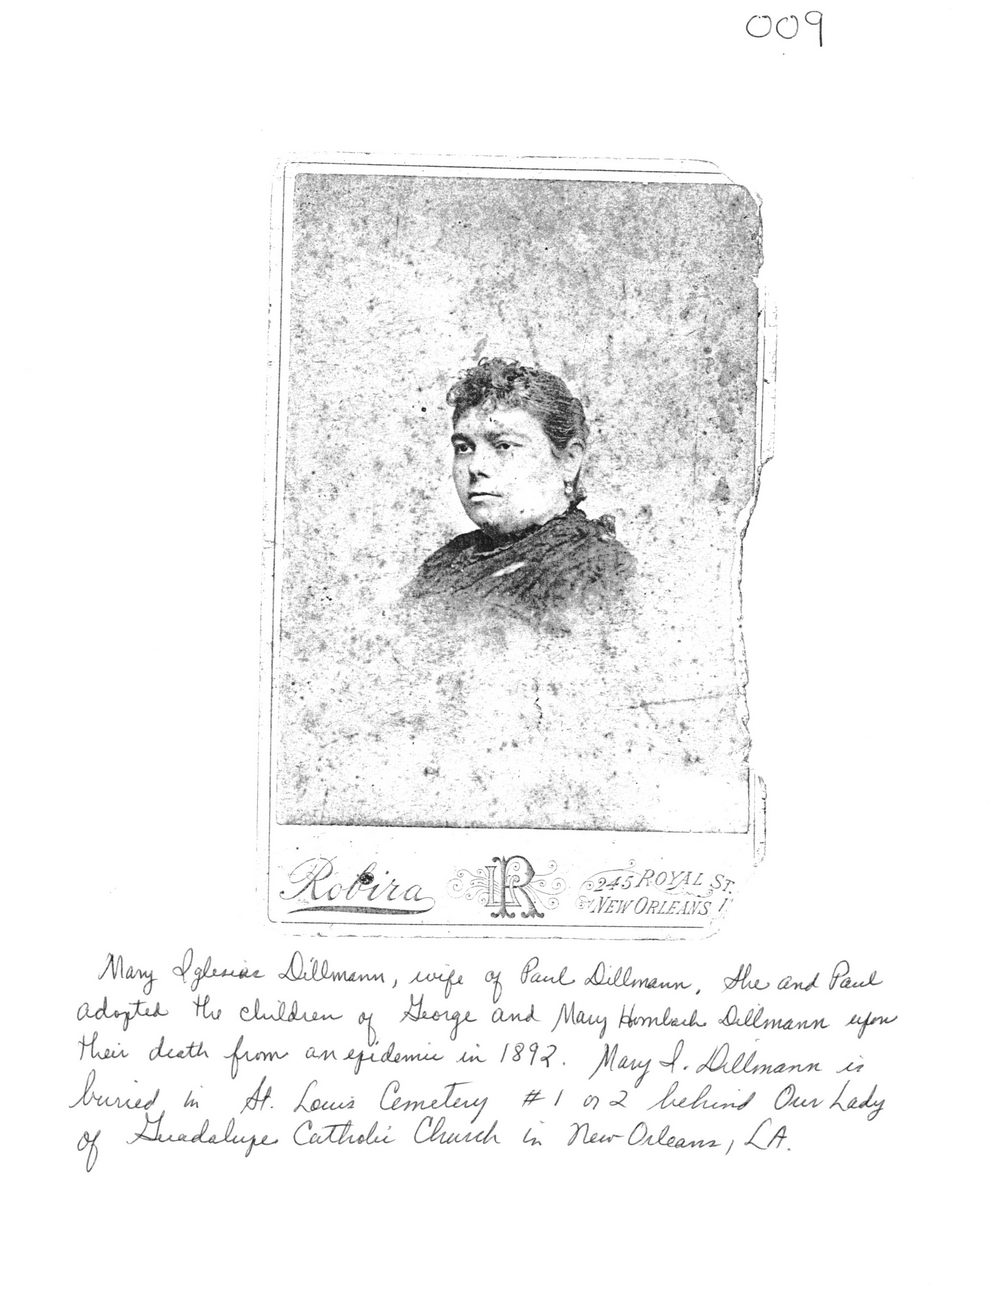 009
Robira
LR
245 ROYAL ST.
NEW ORLEANS
Mary Iglesias Dillmann, wife of Paul Dillmann. She and Paul
adopted the children of George and Mary Hornbach Dillmann upon
their death from an epidemic in 1892. Mary I. Dillmann is
buried in St. Louis Cemetery #1 or 2 behind Our Lady
of Guadalupe Catholic Church in New Orleans, LA.